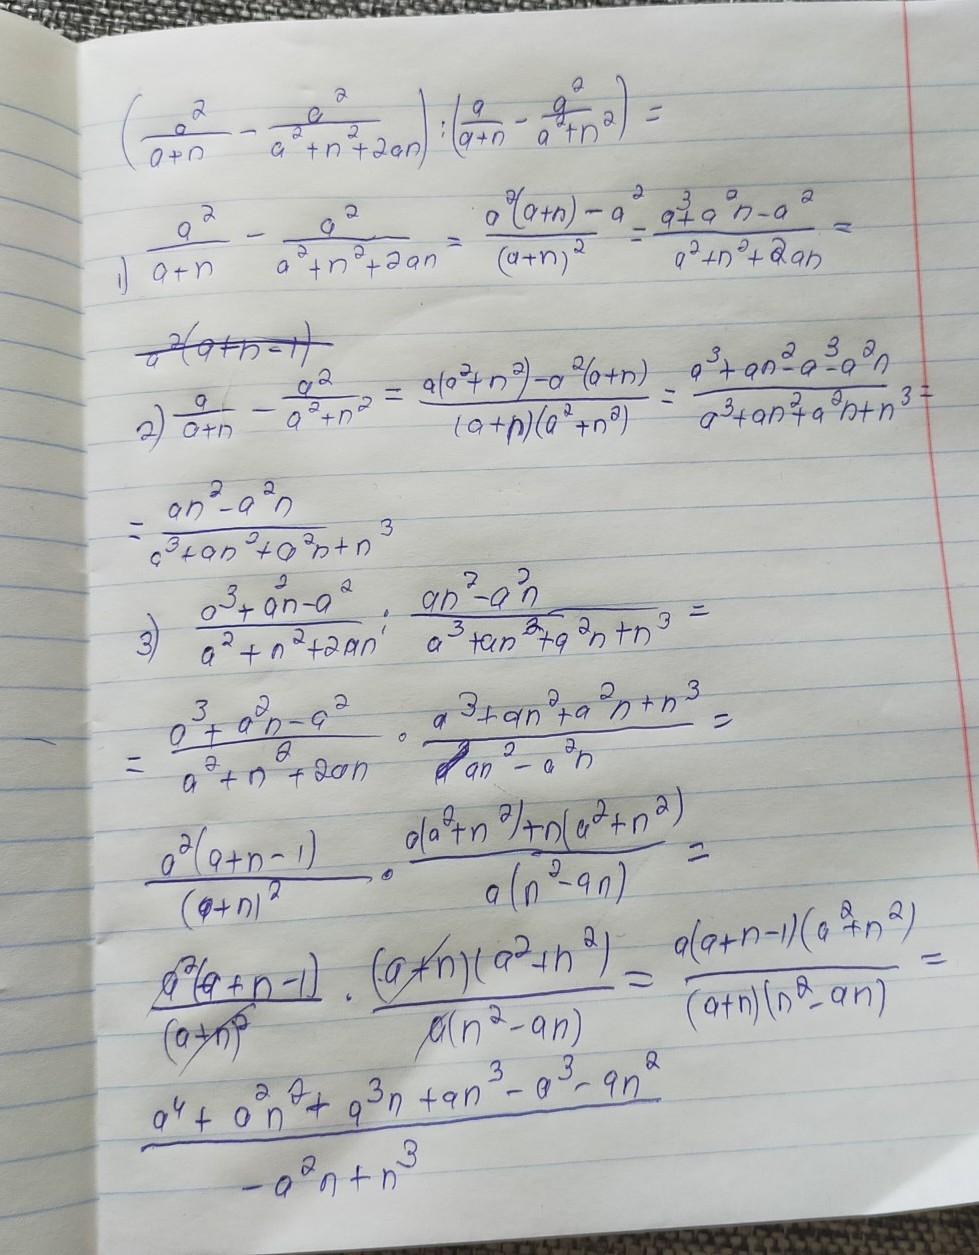 (a²/(a+n) - a²/(a²+n²+2an)) : (a/(a+n) - a²/(a²+n²)) =
1) a²/(a+n) - a²/(a²+n²+2an) = (a²(a+n)-a²)/(a+n)² = (a³+a²n-a²)/(a²+n²+2an) =
a²(a+n-1)
2) a/(a+n) - a²/(a²+n²) = (a(a²+n²)-a²(a+n))/((a+n)(a²+n²)) = (a³+an²-a³-a²n)/(a³+an²+a²n+n³) =
= (an²-a²n)/(a³+an²+a²n+n³)
3) (a³+a²n-a²)/(a²+n²+2an) : (an²-a²n)/(a³+an²+a²n+n³) =
= (a³+a²n-a²)/(a²+n²+2an) · (a³+an²+a²n+n³)/(an²-a²n) =
a²(a+n-1)/(a+n)² · (a(a²+n²)+n(a²+n²))/(a(n²-an)) =
a²(a+n-1)/(a+n)² · ((a+n)(a²+n²))/(a(n²-an)) = (a(a+n-1)(a²+n²))/((a+n)(n²-an)) =
(a⁴+a²n²+a³n+an³-a³-an²)/(-a²n+n³)